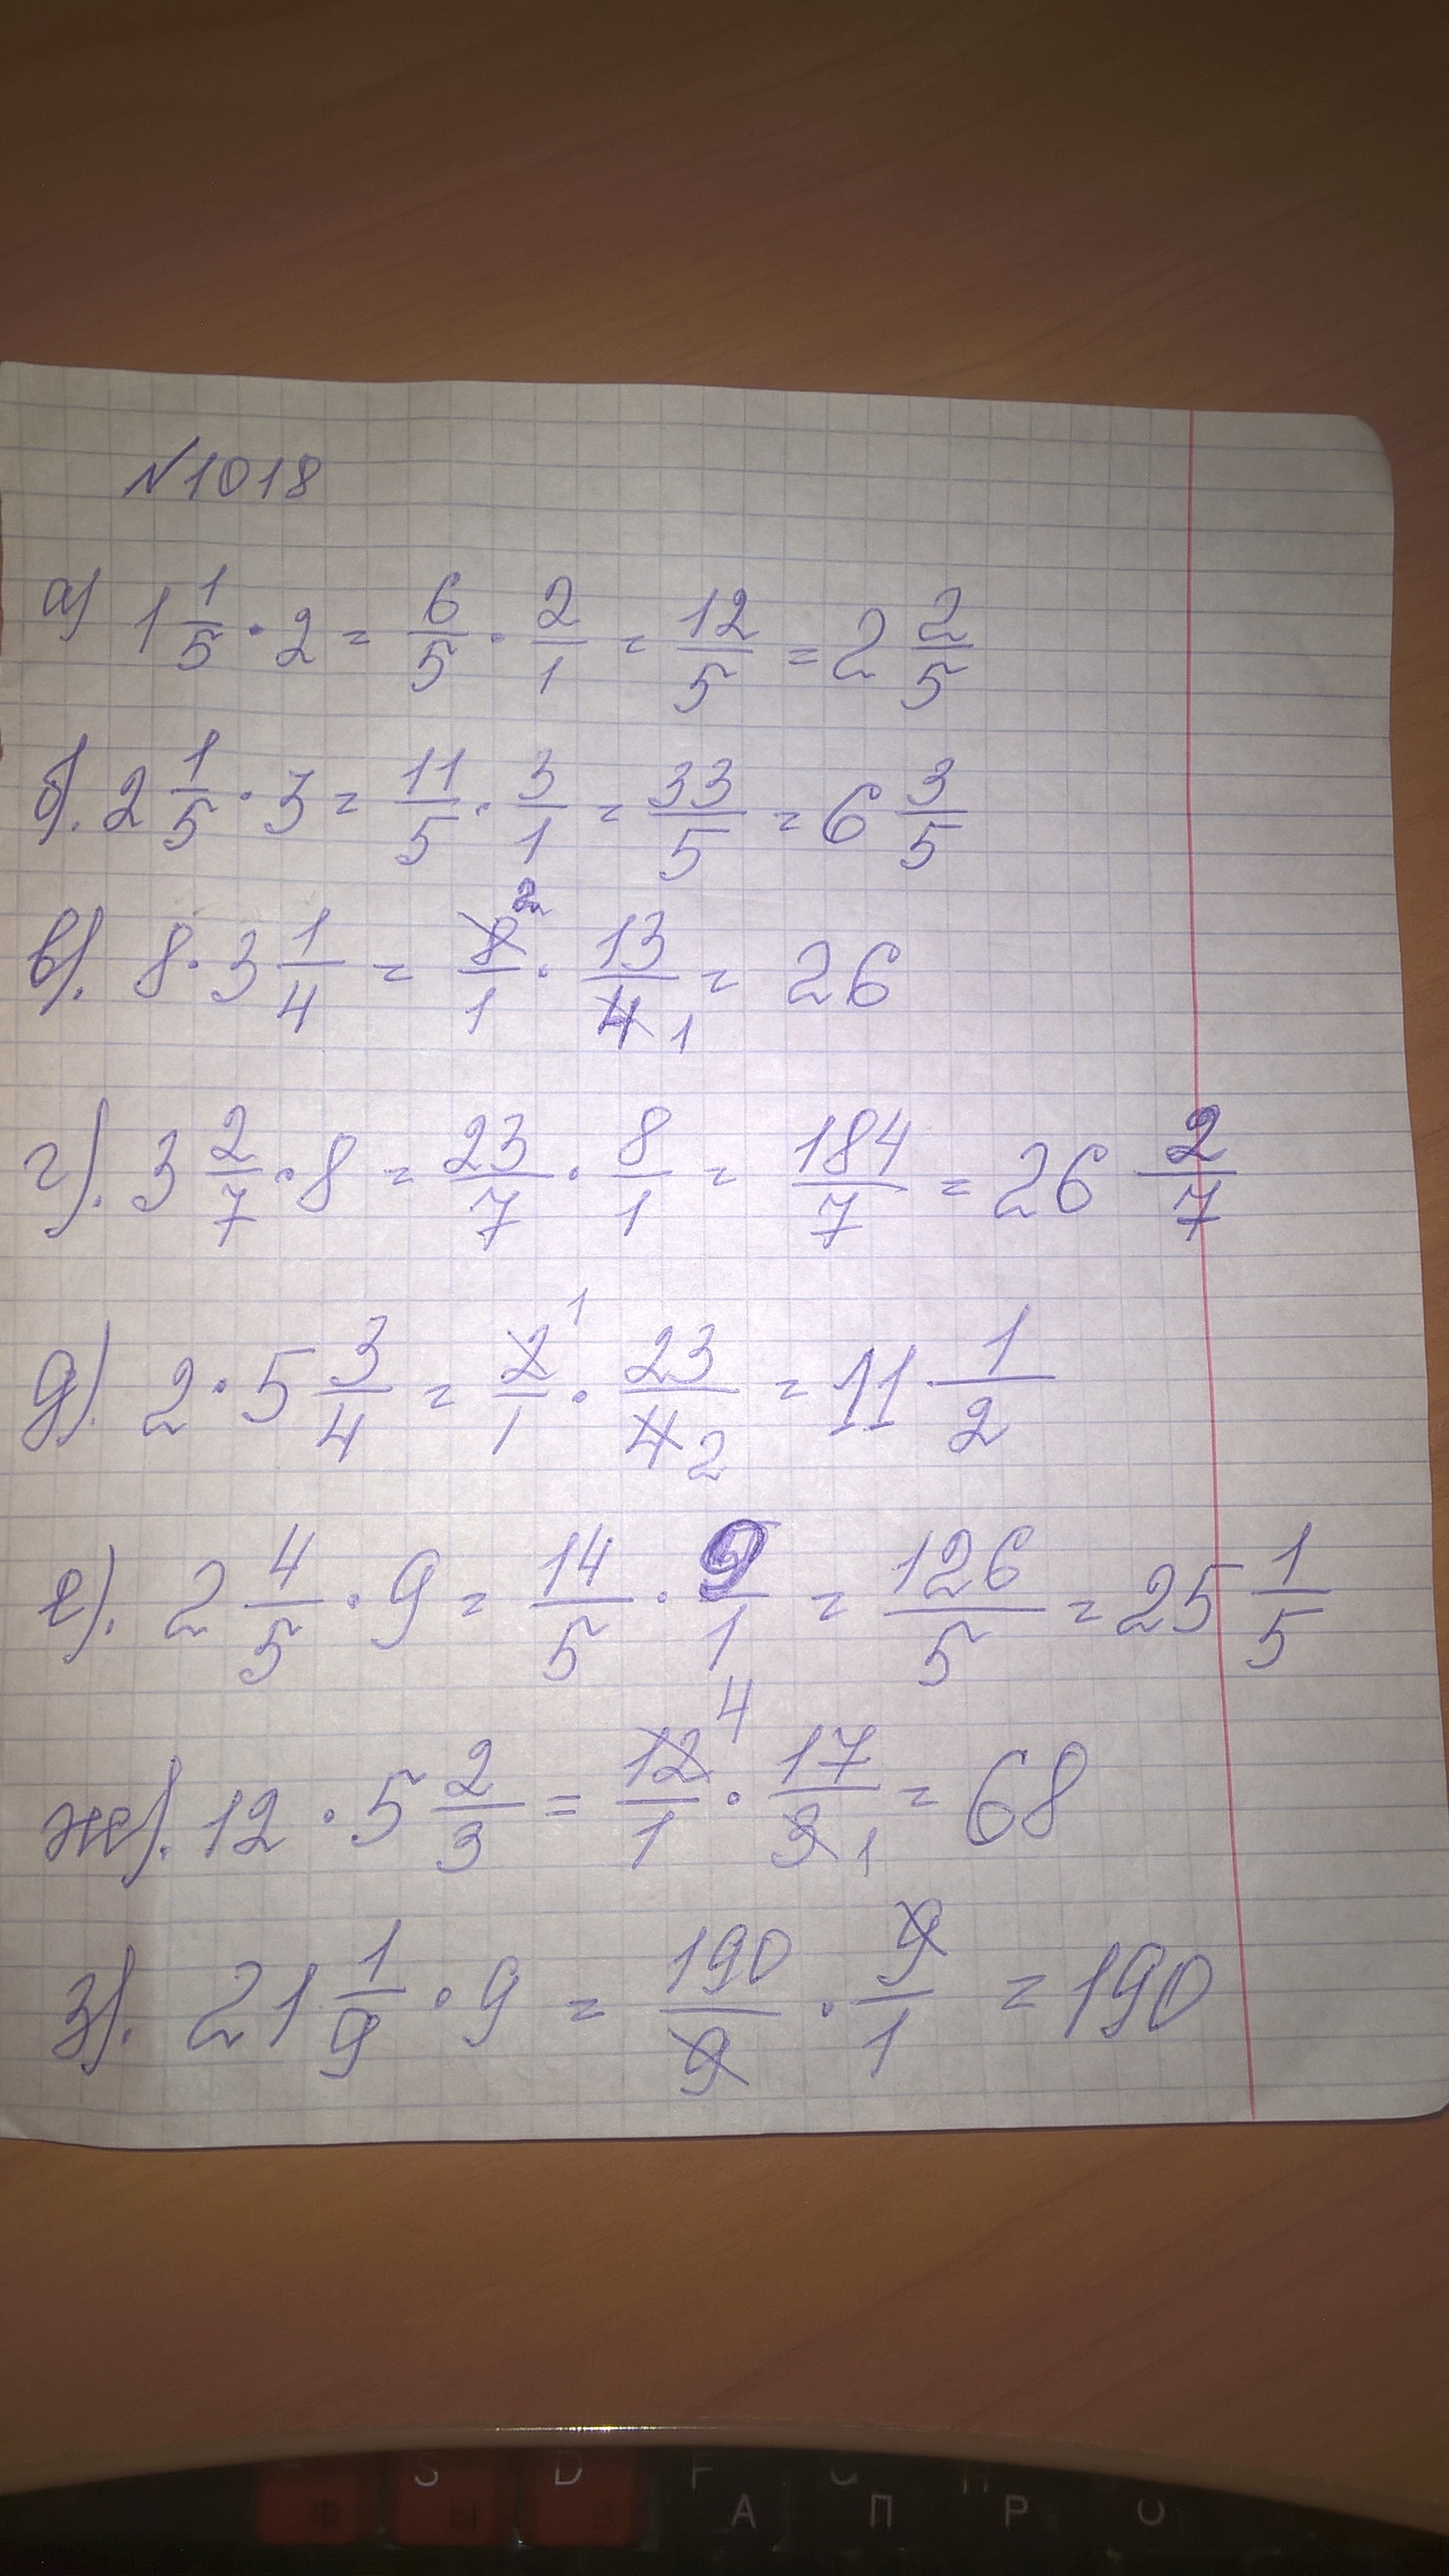 №1018
а) 1 1/5 · 2 = 6/5 · 2/1 = 12/5 = 2 2/5
б). 2 1/5 · 3 = 11/5 · 3/1 = 33/5 = 6 3/5
в). 8 · 3 1/4 = 8²/1 · 13/4₁ = 26
г). 3 2/7 · 8 = 23/7 · 8/1 = 184/7 = 26 2/7
д). 2 · 5 3/4 = 2¹/1 · 23/4₂ = 11 1/2
е). 2 4/5 · 9 = 14/5 · 9/1 = 126/5 = 25 1/5
ж). 12 · 5 2/3 = 12⁴/1 · 17/3₁ = 68
з). 21 1/9 · 9 = 190/9 · 9/1 = 190
S D F
А П Р